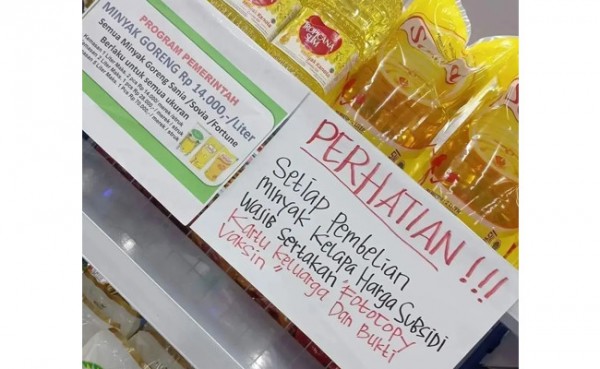 PROGRAM PEMERINTAH
MINYAK GORENG Rp 14.000,-/Liter
Semua Minyak Goreng Sania /Sovia /Fortune
Berlaku untuk semua ukuran
PERHATIAN !!!
Setiap Pembelian
Minyak Kelapa Harga Subsidi
Wajib Sertakan "Fotocopy
Kartu Keluarga Dan Bukti
Vaksin"